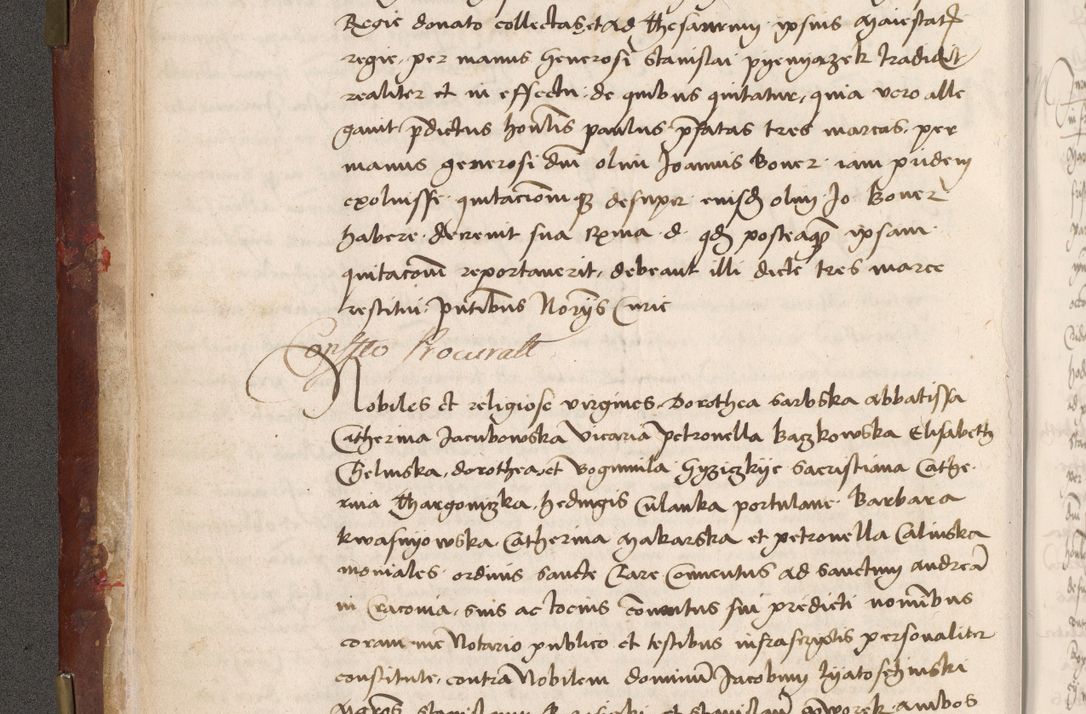 Regie donato collectas et ad Thesaurum ipsius Maiestatis
regie per manus Generosi Stanislai pyenyazek tradidit
realiter et in effectu de quibus quitatur, quia vero alle
gavit pdictus honlis paulus pfatas tres marcas per
manus generosi dni olim Joannis Boner iam pridem
exoluisse quitacionemq desuper eiusd olim Jo Boner
habere decrevit sua Rma d qd posteaq ipsam
quitacom reportaverit, debeant illi dicte tres marce
restitui pntibus Norijs Curie
Constto Procurat
Nobiles et religiose virgines Dorothea Sarbska abbatissa
Catherina Jacubowska Vicaria petronella Baczkowska Elisabeth
Chelmska, dorothea, et Bogumila Gyziczkije Sacristiana Cathe
rina Thargoniczka, hedvigis Culanka portulane Barbara
kwasnyowska Catherina Makarska et petronella Calinska
moniales ordinis Sancte Clare Conventus ad Sanctum andrea
in Cracovia, suis ac tocius Conventus sui predicti nominibus
coram me Notario publico et testibus infrascriptis personaliter
constitute, contra Nobilem dominum Jacobum
Stanislaum et Stanislaum ambos